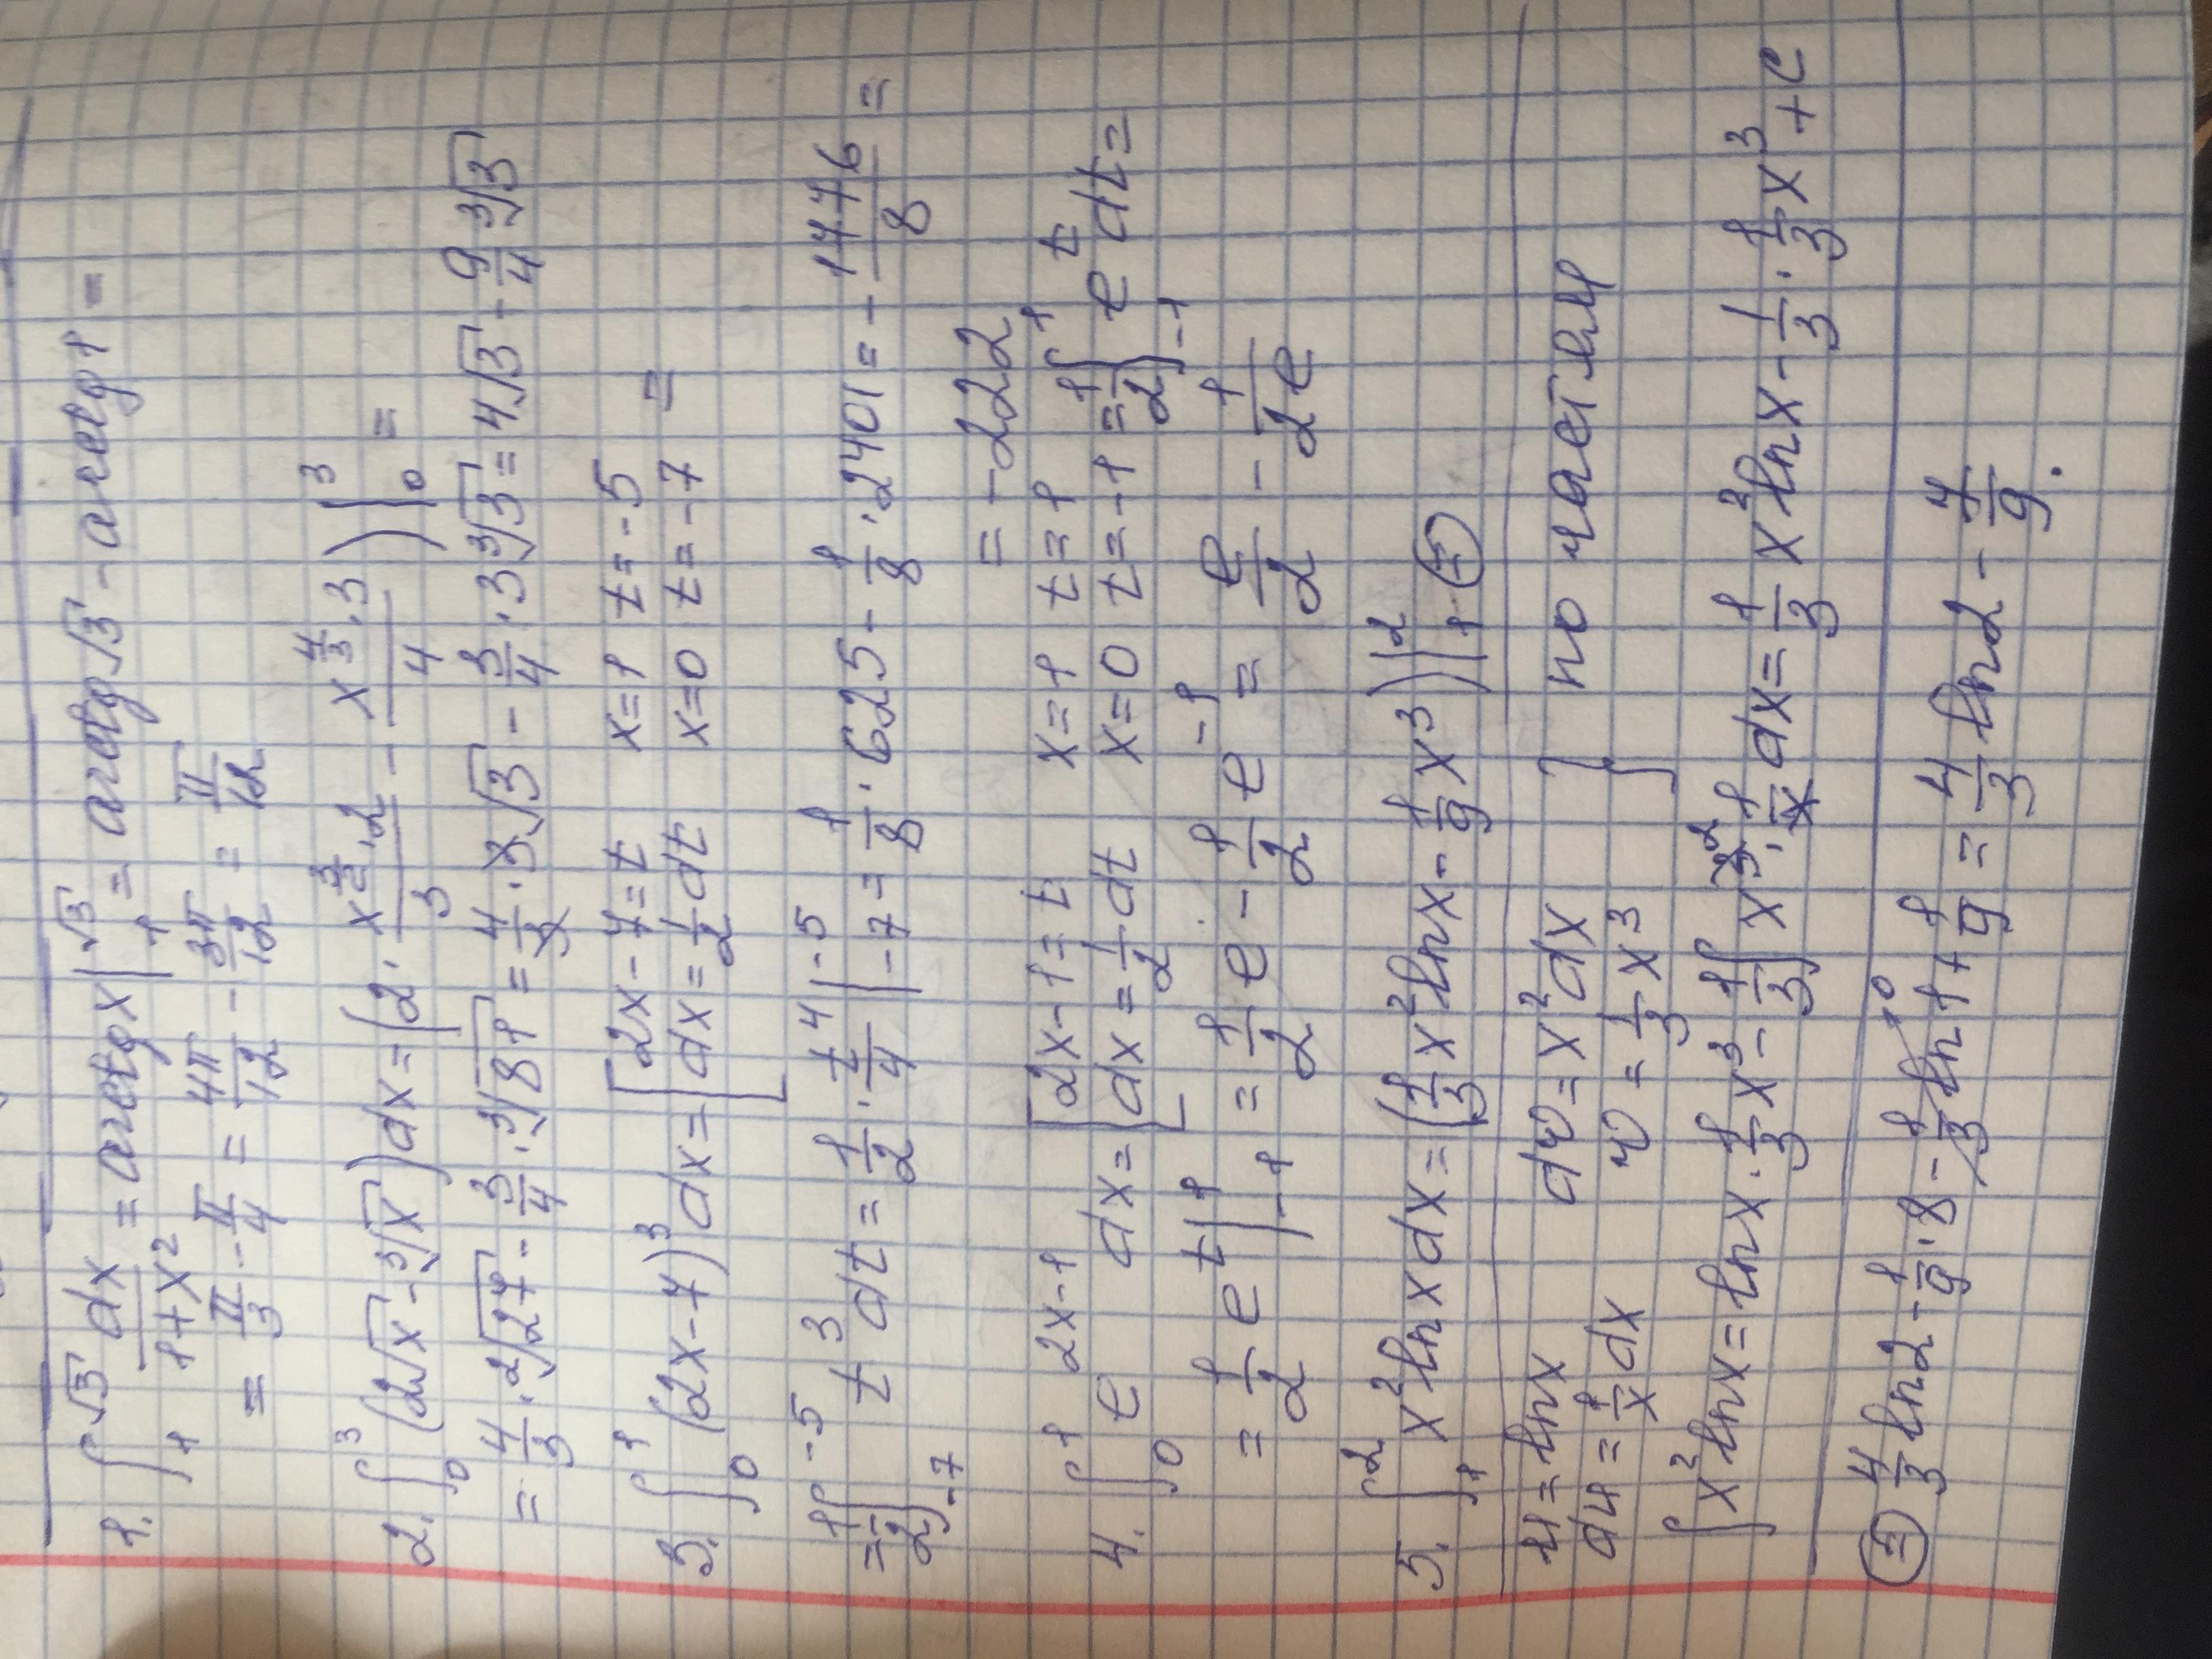 1. ∫₁^√3 dx/(1+x²) = arctg x |₁^√3 = arctg√3 - arctg1 =
= π/3 - π/4 = 4π/12 - 3π/12 = π/12
2. ∫₀³ (2√x - ³√x)dx = (2 · x^(3/2)·2/3 - x^(4/3)·3/4)|₀³ =
= 4/3 · ²√27 - 3/4 · ³√81 = 4/3 · 3√3 - 3/4 · 3 ³√3 = 4√3 - 9/4 ³√3
3. ∫₀¹ (2x-7)³dx = [2x-7=t x=1 t=-5
dx = 1/2 dt x=0 t=-7 =
= 1/2 ∫₋₇^-5 t³ dt = 1/2 · t⁴/4 |₋₇^-5 = 1/8 · 625 - 1/8 · 2401 = - 1776/8 =
= -222
4. ∫₀¹ e^(2x-1) dx = [2x-1=t x=1 t=1
dx = 1/2 dt x=0 t=-1 = 1/2 ∫₋₁¹ e^t dt =
= 1/2 e^t |₋₁¹ = 1/2 e - 1/2 e^-1 = e/2 - 1/2e
5. ∫₁² x² lnx dx = (1/3 x² lnx - 1/9 x³)|₁² (=)
u = lnx dv = x² dx } по частям
du = 1/x dx v = 1/3 x³
∫x² lnx = lnx · 1/3 x³ - 1/3 ∫ x³ · 1/x dx = 1/3 x³ lnx - 1/3 · 1/3 x³ + C
(=) 4/3 ln2 - 1/9 · 8 - 1/3 ln1 + 1/9 = 4/3 ln2 - 4/9.